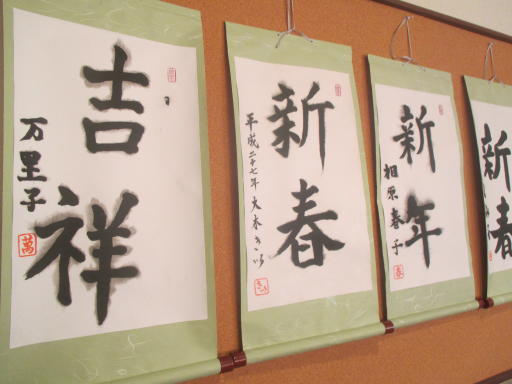 吉祥
万里子
萬
新春
平成二十七年 大木きい
新年
相原春子
春
新春